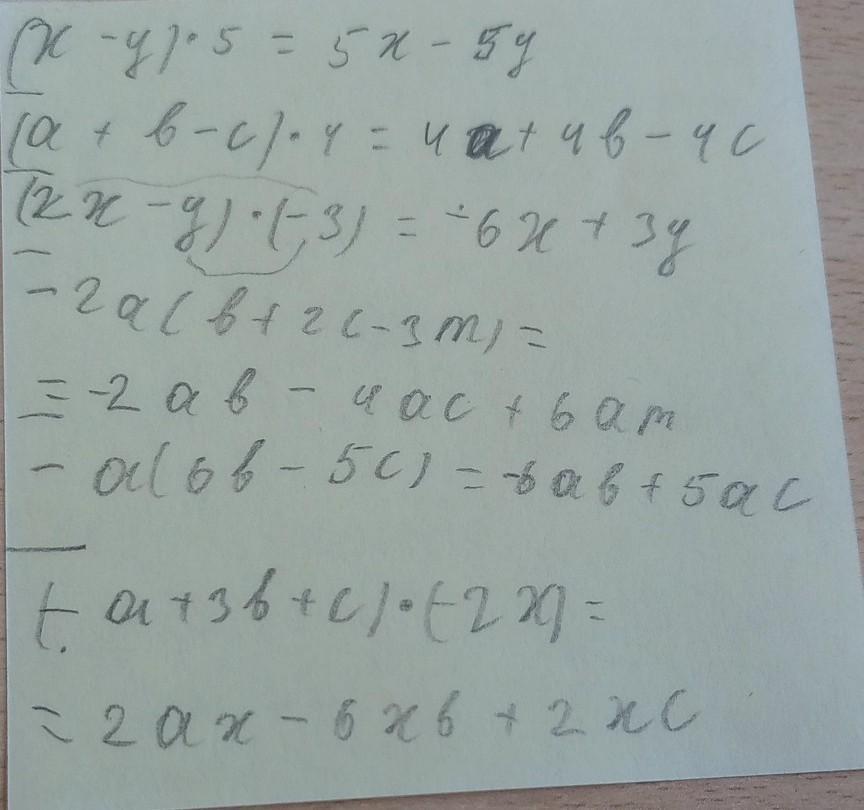 (x - y) · 5 = 5x - 5y
(a + b - c) · 4 = 4a + 4b - 4c
(2x - y) · (-3) = -6x + 3y
-2a(b + 2c - 3m) =
= -2ab - 4ac + 6am
-a(6b - 5c) = -6ab + 5ac
(-a + 3b + c) · (-2x) =
= 2ax - 6xb + 2xc